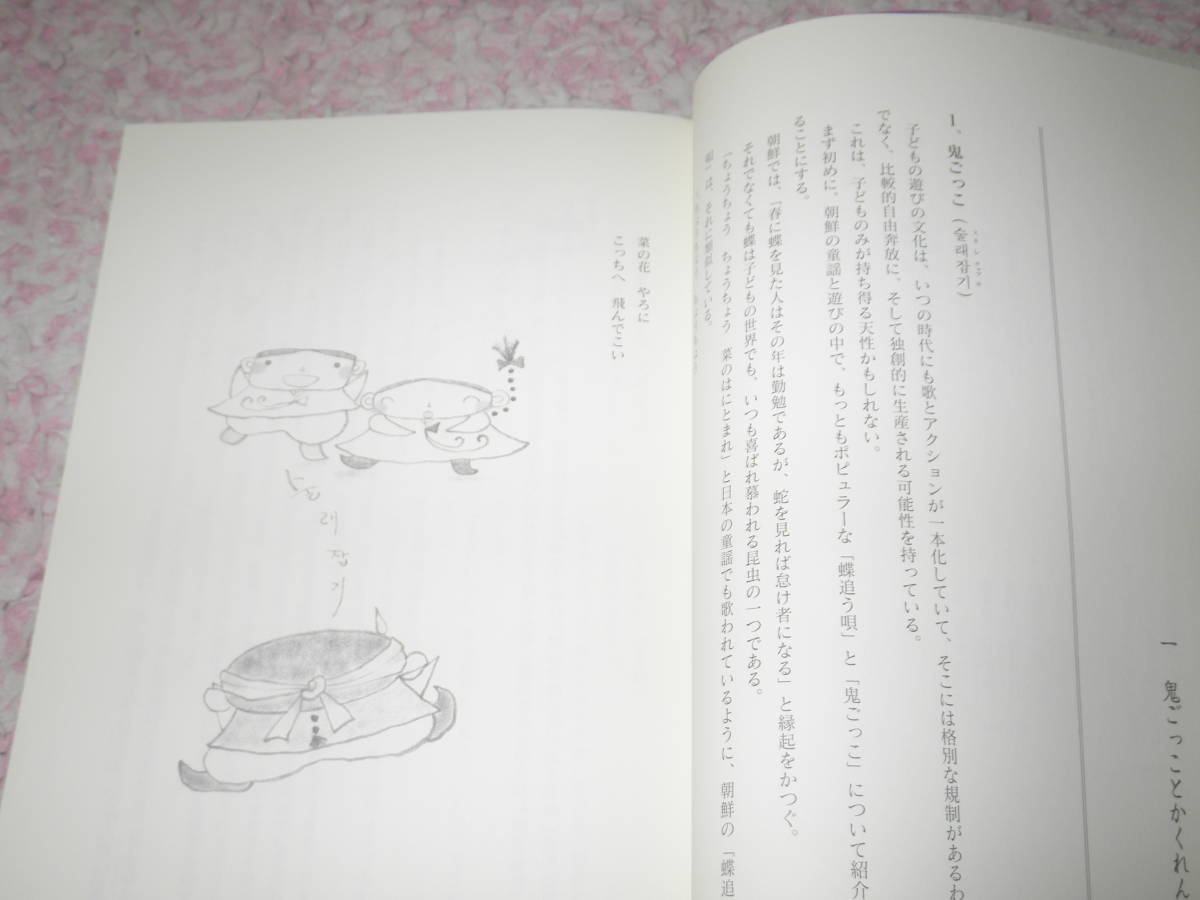 一 鬼ごっことかくれん
1、鬼ごっこ（술래잡기）
子どもの遊びの文化は、いつの時代にも歌とアクションが一本化していて、そこには格別な規制があるわ
でなく、比較的自由奔放に、そして独創的に生産される可能性を持っている。
これは、子どものみが持ち得る天性かもしれない。
まず初めに、朝鮮の童謡と遊びの中で、もっともポピュラーな「蝶追う唄」と「鬼ごっこ」について紹介
ることにする。
朝鮮では、「春に蝶を見た人はその年は勤勉であるが、蛇を見れば怠け者になる」と縁起をかつぐ。
それでなくても蝶は子どもの世界でも、いつも喜ばれ慕われる昆虫の一つである。
「ちょうちょう ちょうちょう 菜のはにとまれ」と日本の童謡でも歌われているように、朝鮮の「蝶追
唄」は、それに類似している。
菜の花 やろに
こっちへ 飛んでこい
술래잡기